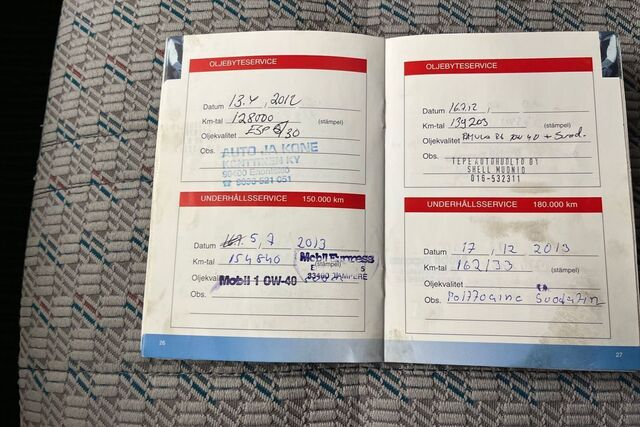 OLJEBYTESERVICE
Datum 13.4, 2012
Km-tal 128000 (stämpel)
Oljekvalitet ESP 5/30
Obs. AUTO JA KONE
KORTTINEN KY
99400 Enontekiö
UNDERHÅLLSSERVICE 150.000 km
Datum 5,7 2013
Km-tal 154840 Mobil Express
(stämpel)
Oljekval Mobil 1 0W-40 33400 TAMPERE
Obs.
26
OLJEBYTESERVICE
Datum 16.2.12,
Km-tal 139203 (stämpel)
Oljekvalitet + Suod.
Obs. TEPE AUTOHUOLTO OY
SHELL MUONIO
016-532311
UNDERHÅLLSSERVICE 180.000 km
Datum 17, 12 2013
Km-tal 162133 (stämpel)
Oljekvalitet
Obs. Suodatin
27